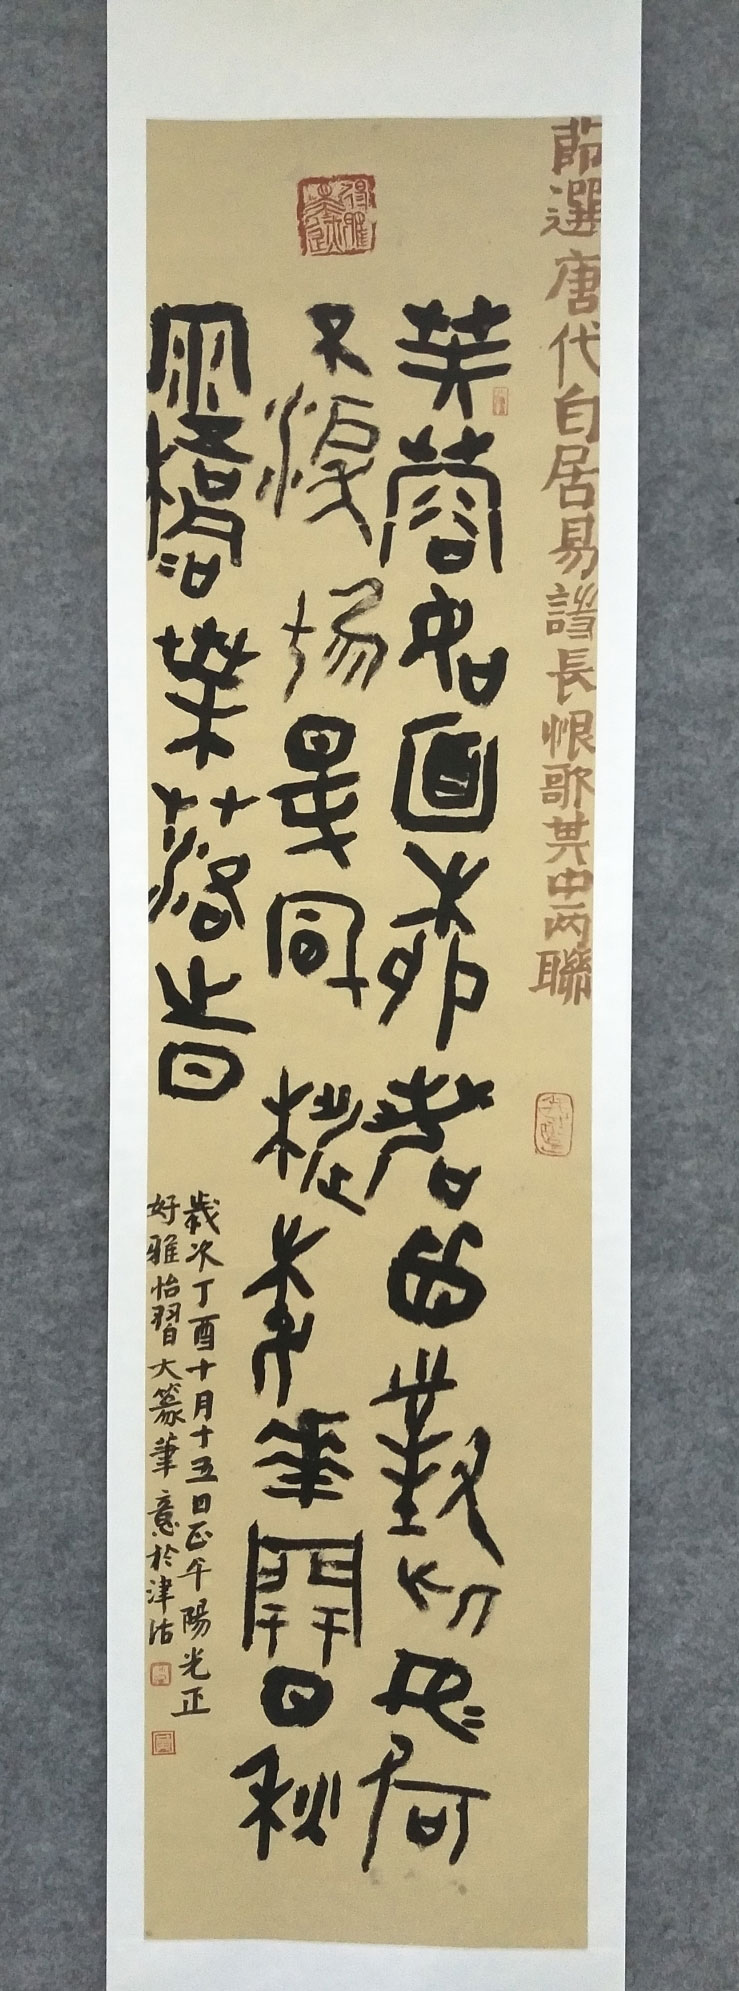 節選唐代白居易詩長恨歌其中两聯
芙蓉如面柳眉對此如何
不淚垂春風桃李華開日秋
雨梧桐葉落時
歲次丁酉十月十五日正午陽光正
好雅怡習大篆筆意於津沽